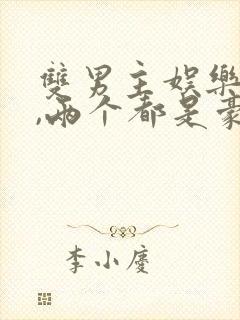 雙男主娛樂
,兩个都是豪
李小慶